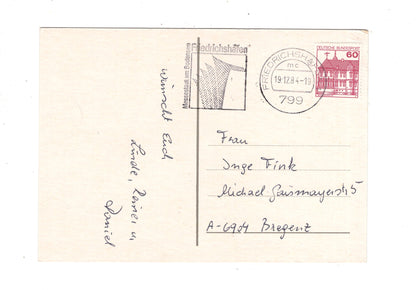 wünscht Euch
Linde, Reiner u.
Daniel
Messestadt am Bodensee
Friedrichshafen
FRIEDRICHSHAFEN
mc
19.12.84-19
799
DEUTSCHE BUNDESPOST
60
Frau
Inge Fink
Michael Gaismayerstr 5
A-6904 Bregenz